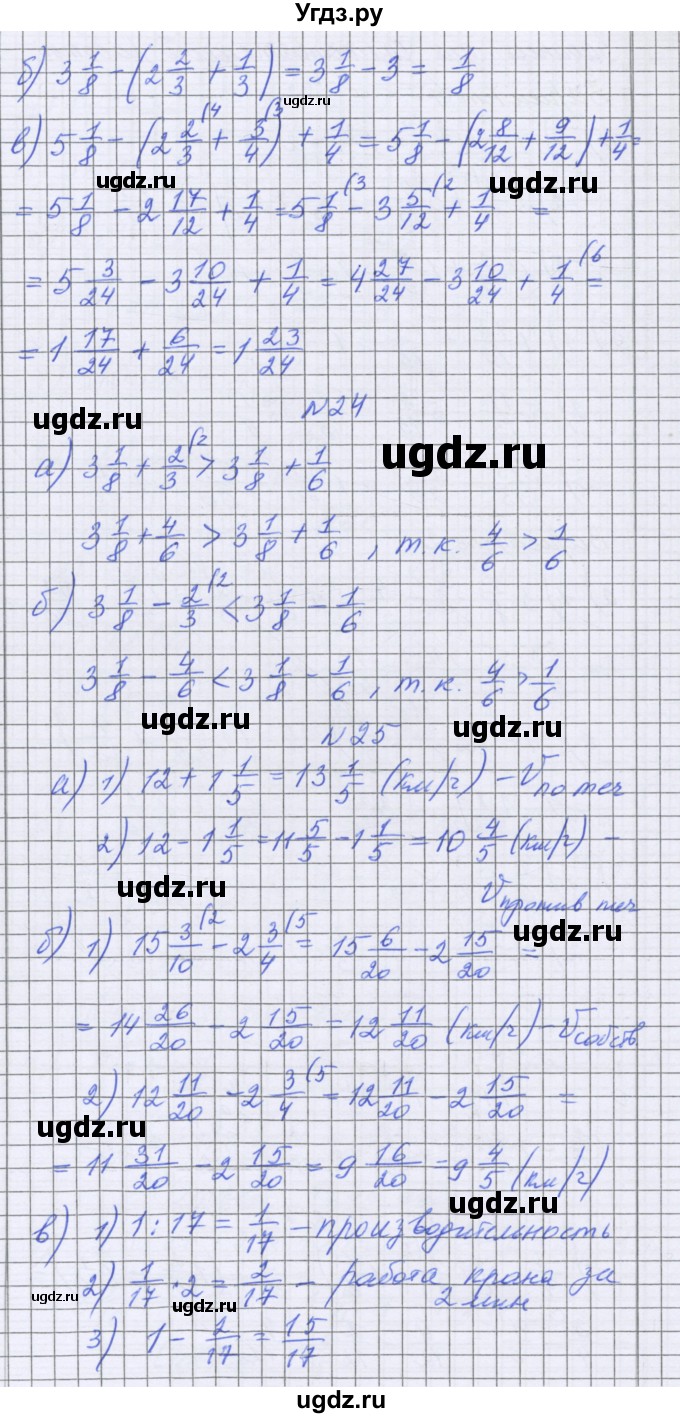 Угдз.ру
б) 3 1/8 − (2 2/3 + 1/3) = 3 1/8 − 3 = 1/8
ugdz.ru
в) 5 1/8 − (2 2/3 (4 + 3/4 (3) + 1/4 = 5 1/8 − (2 8/12 + 9/12) + 1/4 =
ugdz.ru ugdz.ru
= 5 1/8 − 2 17/12 + 1/4 = 5 1/8 (3 − 3 5/12 (2 + 1/4 =
= 5 3/24 − 3 10/24 + 1/4 = 4 27/24 − 3 10/24 + 1/4 (6 =
= 1 17/24 + 6/24 = 1 23/24
ugdz.ru
N24
ugdz.ru
а) 3 1/8 + 2/3 (2 > 3 1/8 + 1/6
3 1/8 + 4/6 > 3 1/8 + 1/6, т.к. 4/6 > 1/6
б) 3 1/8 − 2/3 (2 < 3 1/8 − 1/6
3 1/8 − 4/6 < 3 1/8 − 1/6, т.к. 4/6 > 1/6
ugdz.ru ugdz.ru
N25
а) 1) 12 + 1 1/5 = 13 1/5 (км/ч) − V по теч
2) 12 − 1 1/5 = 11 5/5 − 1 1/5 = 10 4/5 (км/ч) −
ugdz.ru
V против теч
б) 1) 15 3/10 (2 − 2 3/4 (5 = 15 6/20 − 2 15/20 =
ugdz.ru
= 14 26/20 − 2 15/20 = 12 11/20 (км/ч) − V собств
2) 12 11/20 − 2 3/4 (5 = 12 11/20 − 2 15/20 =
ugdz.ru
= 11 31/20 − 2 15/20 = 9 16/20 = 9 4/5 (км/ч)
ugdz.ru
в) 1) 1 : 17 = 1/17 − производительность
2) 1/17 · 2 = 2/17 − работа крана за
ugdz.ru ugdz.ru
2 мин
3) 1 − 2/17 = 15/17
ugdz.ru